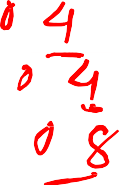 04
04
08